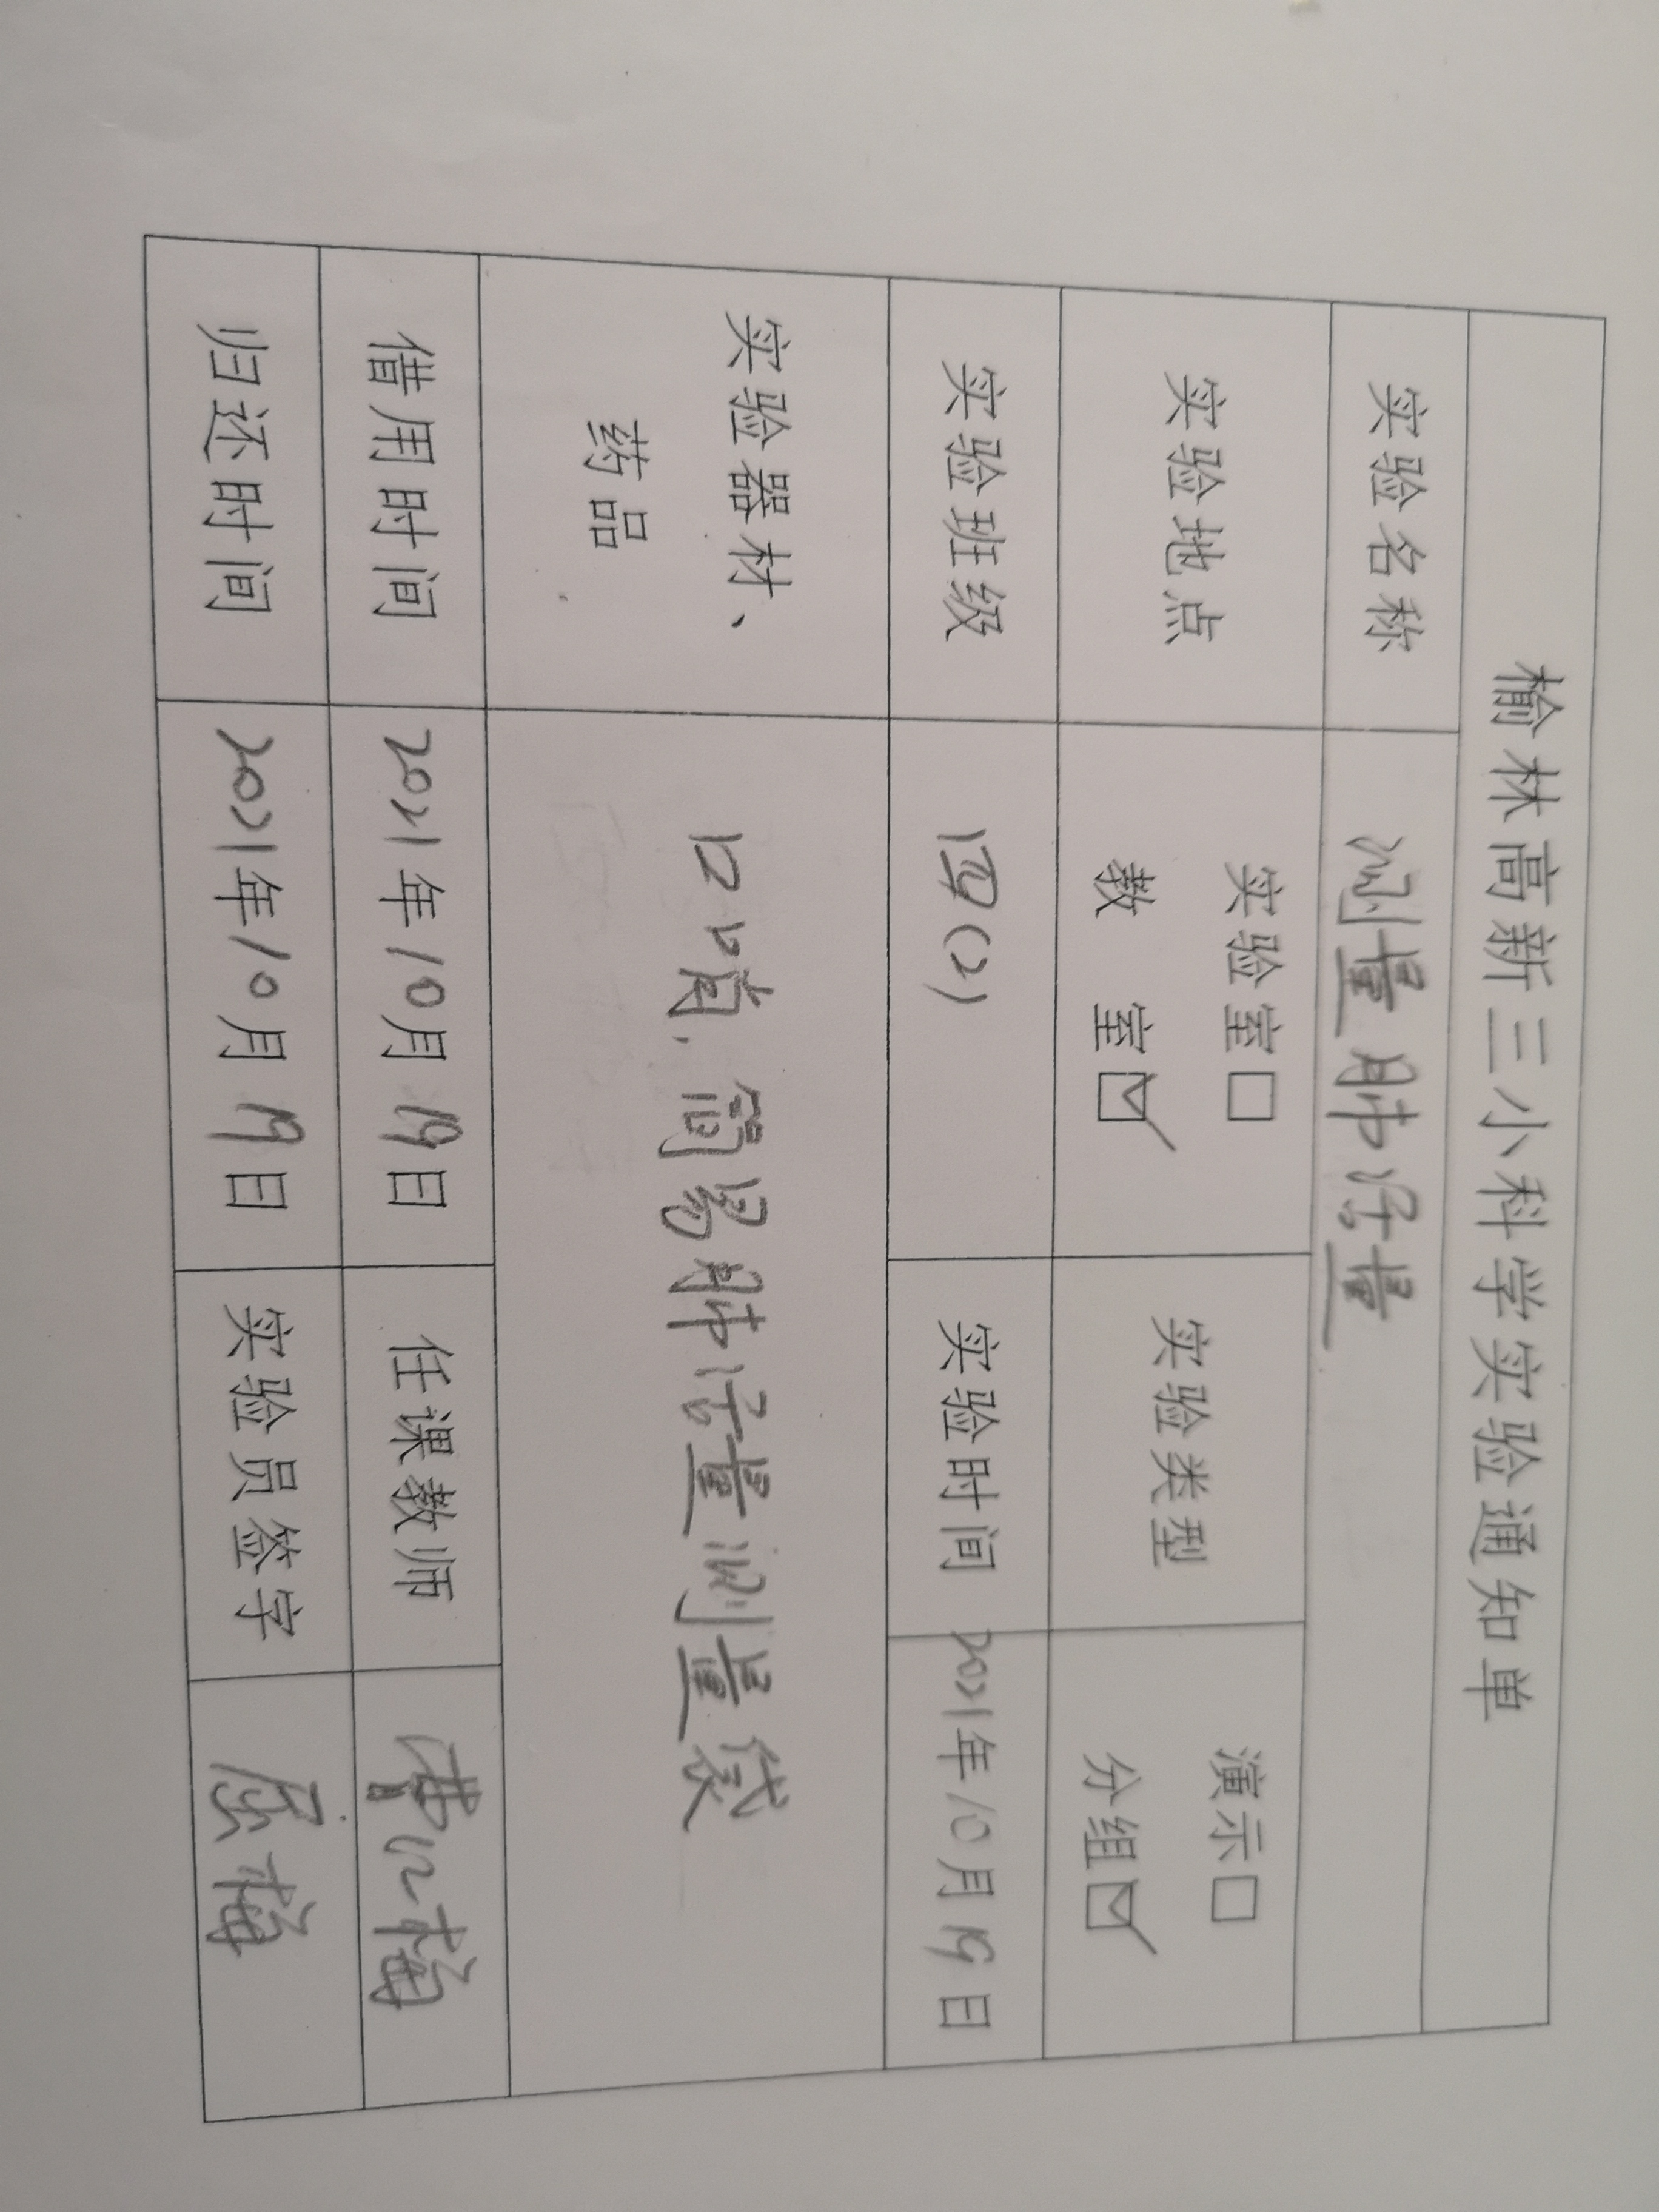 榆林高新三小科学实验通知单
实验名称 测量肺活量
实验地点 实验室□ 教 室☑ 实验类型 演示□ 分组☑
实验班级 四(2) 实验时间 2021年10月19日
实验器材、药品 口嘴、简易肺活量测量袋
借用时间 2021年10月19日 任课教师 曹江梅
归还时间 2021年10月19日 实验员签字